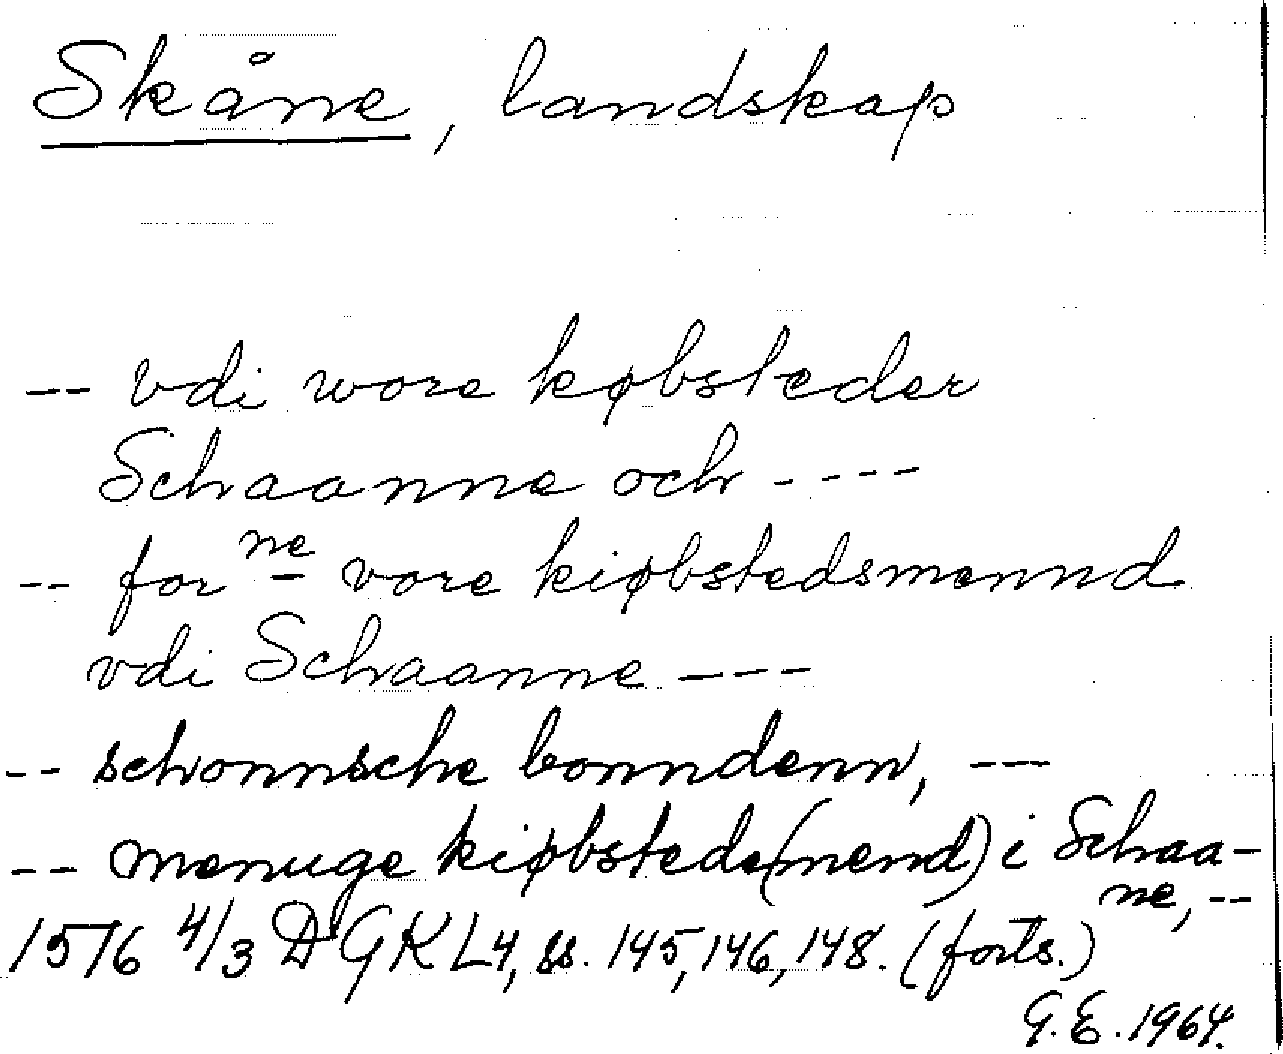 Skåne, landskap
-- vdi wore købsteder
Schaanne och ----
-- for ne vore kiøbstedsmennd
vdi Schaanne ---
-- schonnsche bonndenn, ---
-- menuge kiøbstede(mend) i Schaa-
ne, --
1576 4/3 DGKL4, ss. 145, 146, 148. (forts.)
G.E. 1964.